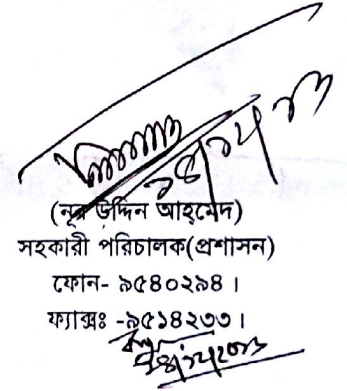 (নূর উদ্দিন আহ্‌মেদ)
সহকারী পরিচালক(প্রশাসন)
ফোন- ৯৫৪০২৯৪।
ফ্যাক্সঃ -৯৫১৪২৩৩।